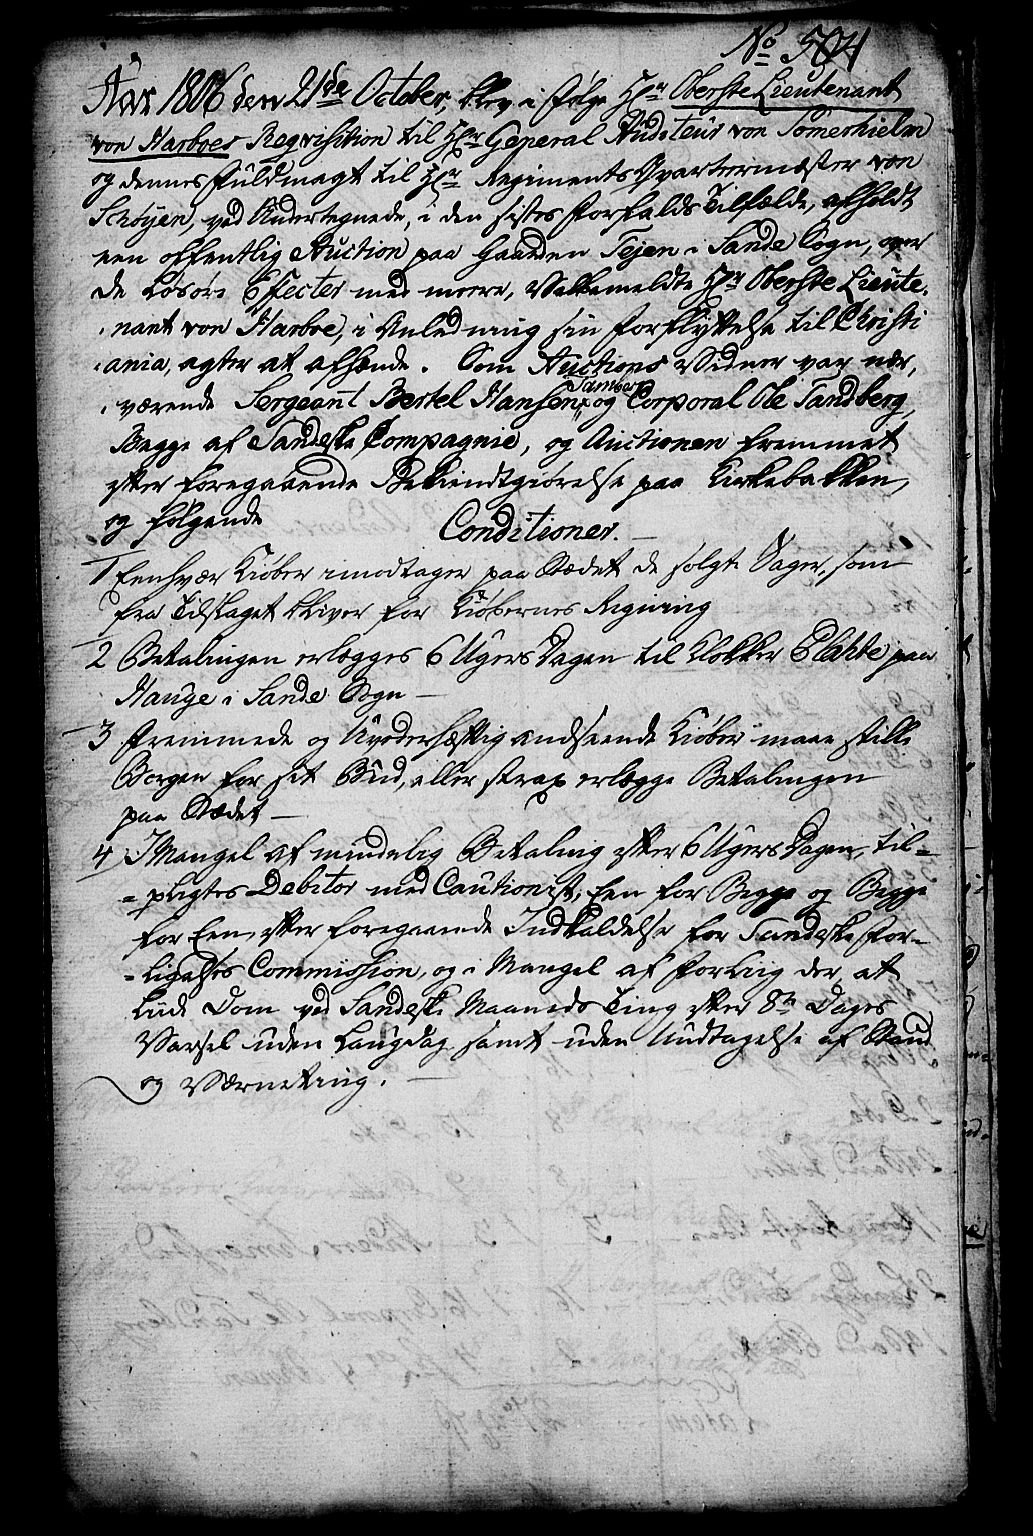 No 504
Aar 1806 den 21de October, blev i følge Hr Oberste Lieutenant
von Harboes Reqvisition til Hr General Auditeur von Sømerhielm
og dennes Fuldmagt til Hr Regiments Qvarteermæster von
Schøyen, ved Undertegnede, i den sistes Forfalds Tilfælde, afholdt
een offentlig Auction paa Gaarden Tejen i Sande Sogn, over
de Løsøre Effecter med meere, Velbemeldte Hr Oberste Lieute-
nant von Harboe, i Anledning sin Forflyttelse til Christi
ania, agter at afhænde. Som Auctions Vidner var nær,
værende Sergeant Bertel Hansen og Corporal Ole Sandberg,
Begge af Sandeske Compagnie, og Auctionen fremmet
efter foregaaende Bekiendtgiørelse paa Kirkebakken,
og følgende
Conditioner.
1 Eenhver Kiøber imodtager paa Stædet de solgte Sager, som
fra Tilslaget bliver for Kiøbernes Regning
2 Betalingen erlægges 6 Ugers Dagen til Klokker Plahte paa
Hauge i Sande Sogn
3 Fremmede og Uvederhæftig andseende Kiøber maae stille
Borgen for sit Bud, eller strax erlægge Betalingen
paa Stædet
4 I Mangel af mindelig Betaling efter 6 Ugers Dagen, til-
pligtes Debitor med Cautionist, Een for Begge og Begge
for Een, efter foregaaende Indkaldelse for Sandeske For-
ligelses Commission, og i Mangel af Forliig der, at
liide Dom ved Sandeske Maaneds Ting efter 8te Dages
Varsel uden Laugdag samt uden Undtagelse af Stand
og Værneting.